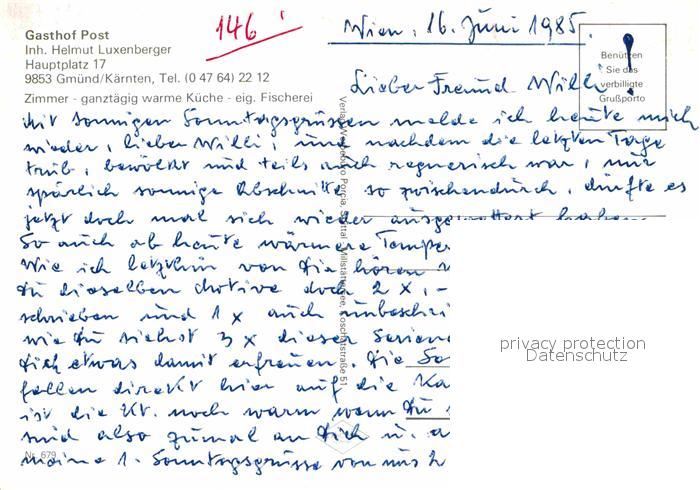 146
Wien, 16. Juni 1985.
Gasthof Post
Inh. Helmut Luxenberger
Hauptplatz 17
9853 Gmünd/Kärnten, Tel. (0 47 64) 22 12
Zimmer - ganztägig warme Küche - eig. Fischerei
Benützen
Sie das
verbilligte
Grußporto
!
Lieber Freund Willi
Mit sonnigen Sonntagsgrüssen melde ich heute mich
wieder, lieber Willi, und nachdem die letzten Tage
trüb, bewölkt und teils auch regnerisch war, nur
spärlich sonnige Abschnitte so zwischendurch, dürfte es
jetzt doch mal sich wieder haben
So auch ab heute wärmere Temper
Wie ich letzthin von Dir hören
Du dieselben Motive doch 2 x, -
schreiben und 1 x auch unbeschri
wie Du siehst 3 x dieser Serien
Dich etwas damit erfreuen. Die So
fallen direkt hier auf die Ka
ist die Kt. noch warm wenn Du
sind also zumal an Dich u. a
meine 1. Sonntagsgrüsse von
Nr. 679
privacy protection
Datenschutz